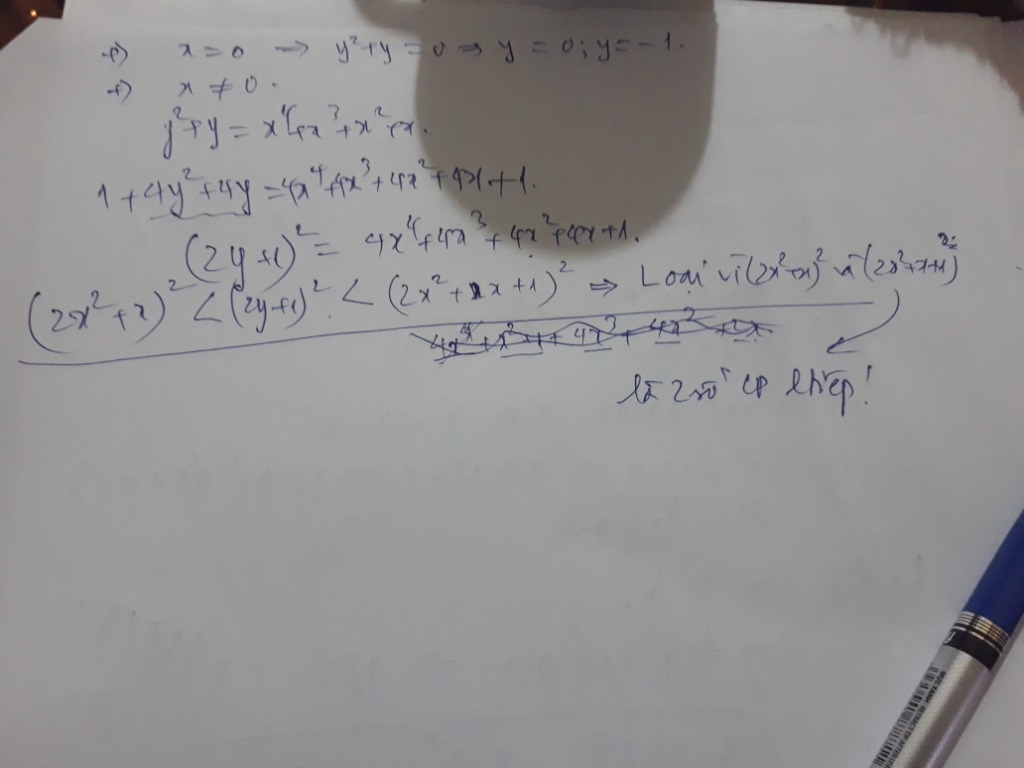 +) x = 0 → y²+y = 0 ⇒ y = 0; y = -1.
+) x ≠ 0.
y²+y = x⁴+x³+x²+x.
1+4y²+4y=4x⁴+4x³+4x²+4x+1.
(2y+1)² = 4x⁴+4x³+4x²+4x+1.
(2x²+x)² < (2y+1)² < (2x²+x+1)² ⇒ Loại vì (2x²+x)² và (2x²+x+1)²
là 2 số CP liên tiếp!